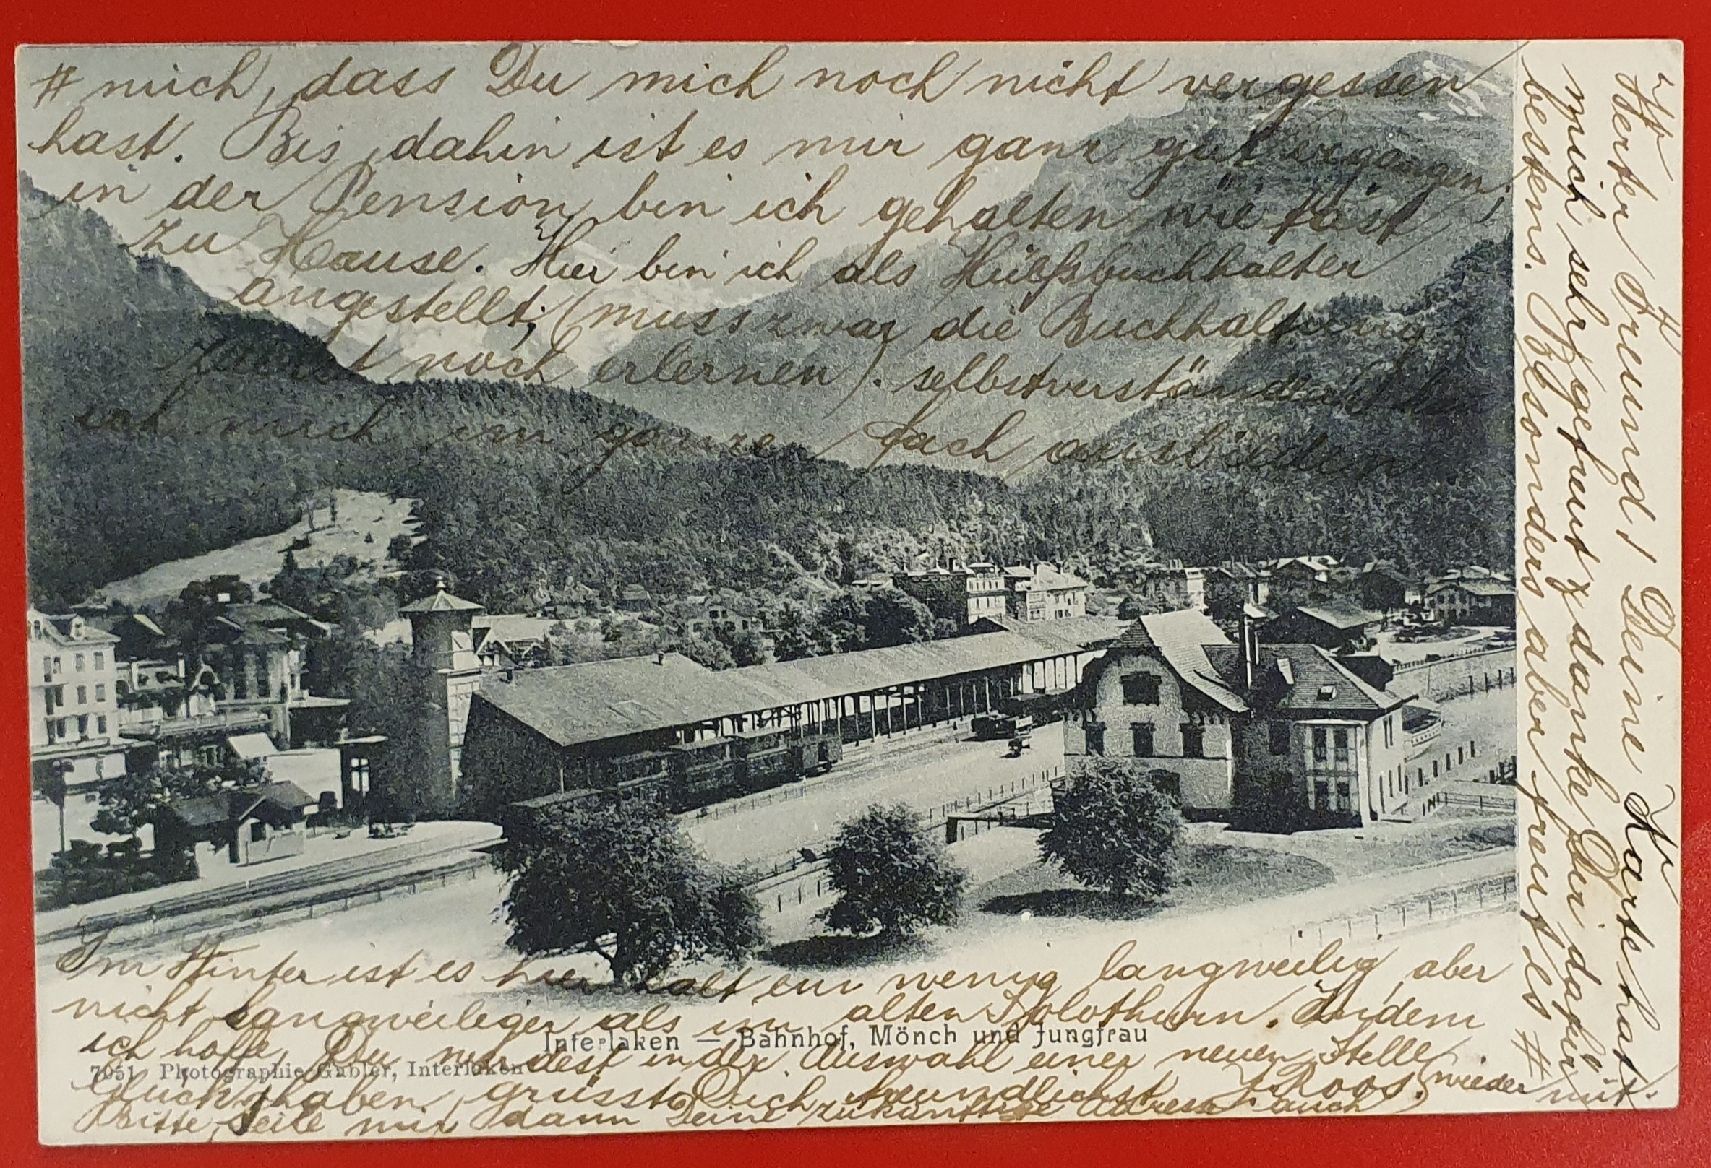 Werter Freund! Deine Karte hat
mich sehr gefreut & danke Dir dafür
bestens. Besonders aber freut es #
# mich, dass Du mich noch nicht vergessen
hast. Bis dahin ist es mir ganz gut ergangen;
in der Pension bin ich gehalten wie fast
zu Hause. Hier bin ich als Hülfsbuchhalter
angestellt, (muss zwar die Buchhaltung
zuerst noch erlernen). selbstverständlich
ich mich im ganzen Fach ausbilden
Im Winter ist es hier halt ein wenig langweilig, aber
nicht langweiliger als im alten Solothurn. Indem
ich hoffe, Du werdest in der Auswahl einer neuen Stelle
Glück haben, grüsst Dich freundlichst Roos.
Bitte, teile mir dann Deine zukünftige Adresse auch wieder mit.
Interlaken — Bahnhof, Mönch und Jungfrau
7051 Photographie Gabler, Interlaken